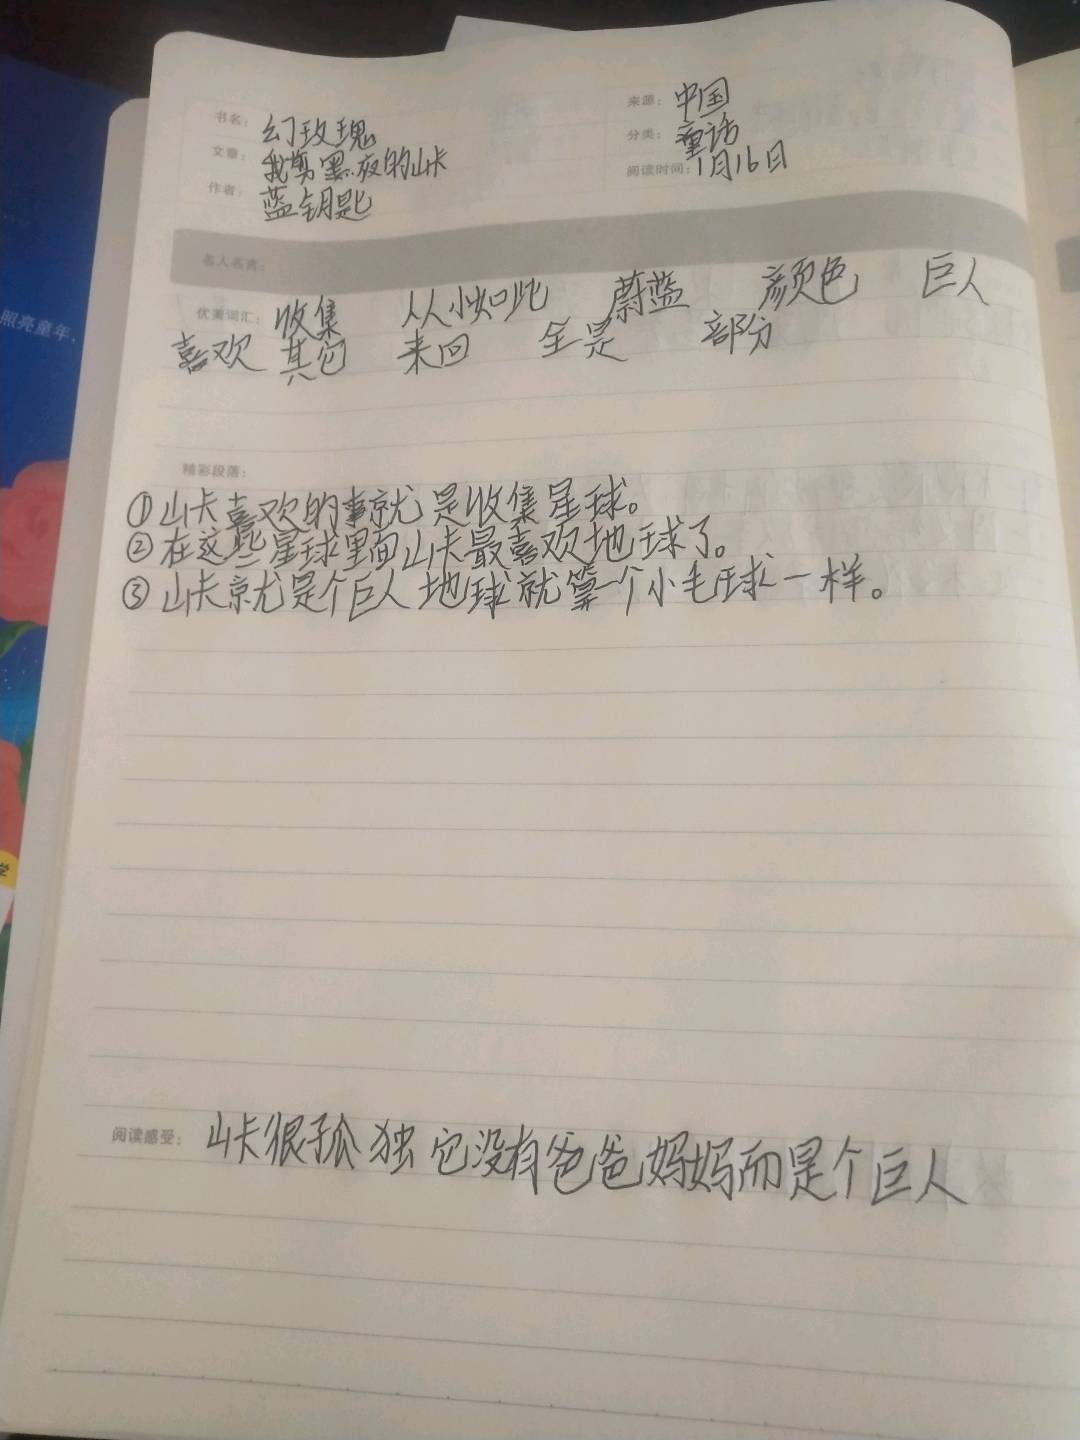 书名： 幻玫瑰
文章： 我剪黑夜的山卡
作者： 蓝钥匙
来源： 中国
分类： 童话
阅读时间： 1月16日
名人名言：
优美词汇： 收集 从小如此 蔚蓝 颜色 巨人
喜欢 其它 来回 全是 部分
精彩段落：
①山卡喜欢的事就是收集星球。
②在这些星球里面山卡最喜欢地球了。
③山卡就是个巨人地球就算一个小毛球一样。
阅读感受： 山卡很孤独它没有爸爸妈妈而是个巨人
照亮童年，
学